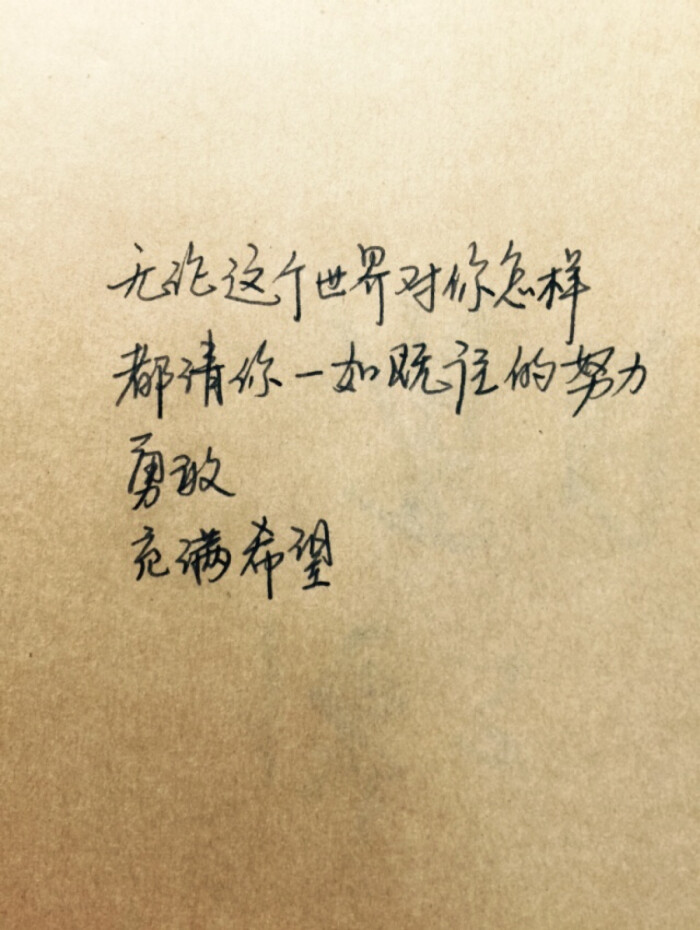 无论这个世界对你怎样
都请你一如既往的努力
勇敢
充满希望